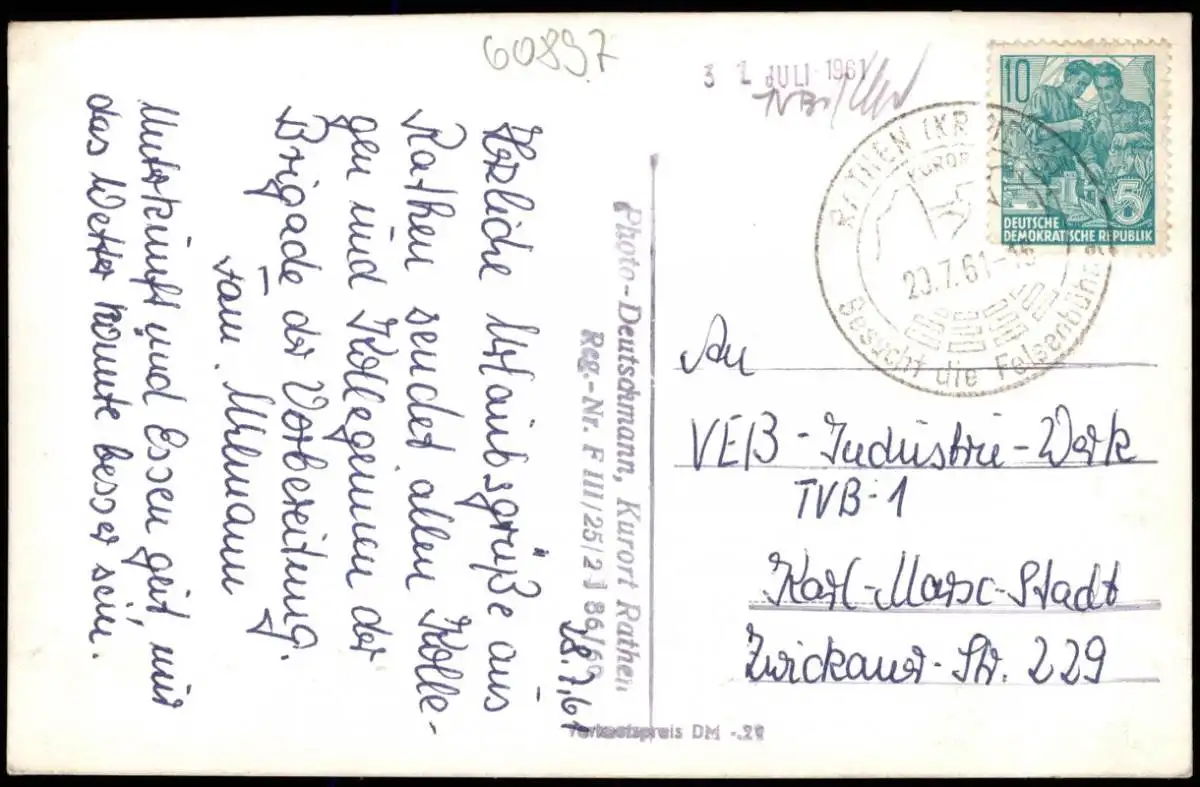 60897
3 1. JULI 1961
10
5
DEUTSCHE
DEMOKRATISCHE REPUBLIK
RATHEN (KR
KUROR
20.7.61-
Besucht die Felsenbühne
28.7.61
Herzliche Urlaubsgrüße aus
Rathen sendet allen Kolle-
gen und Kolleginnen der
Brigade der Vorbereitung.
Fam. Uhlmann
Unterkunft und Essen gut, nur
das Wetter könnte besser sein.
Photo-Deutschmann, Kurort Rathen
Reg.-Nr. F III/25/2 86/60
Verkaufspreis DM -.20
An
VEB-Industrie-Werk
TVB-1
Karl-Marx-Stadt
Zwickauer-Str. 229